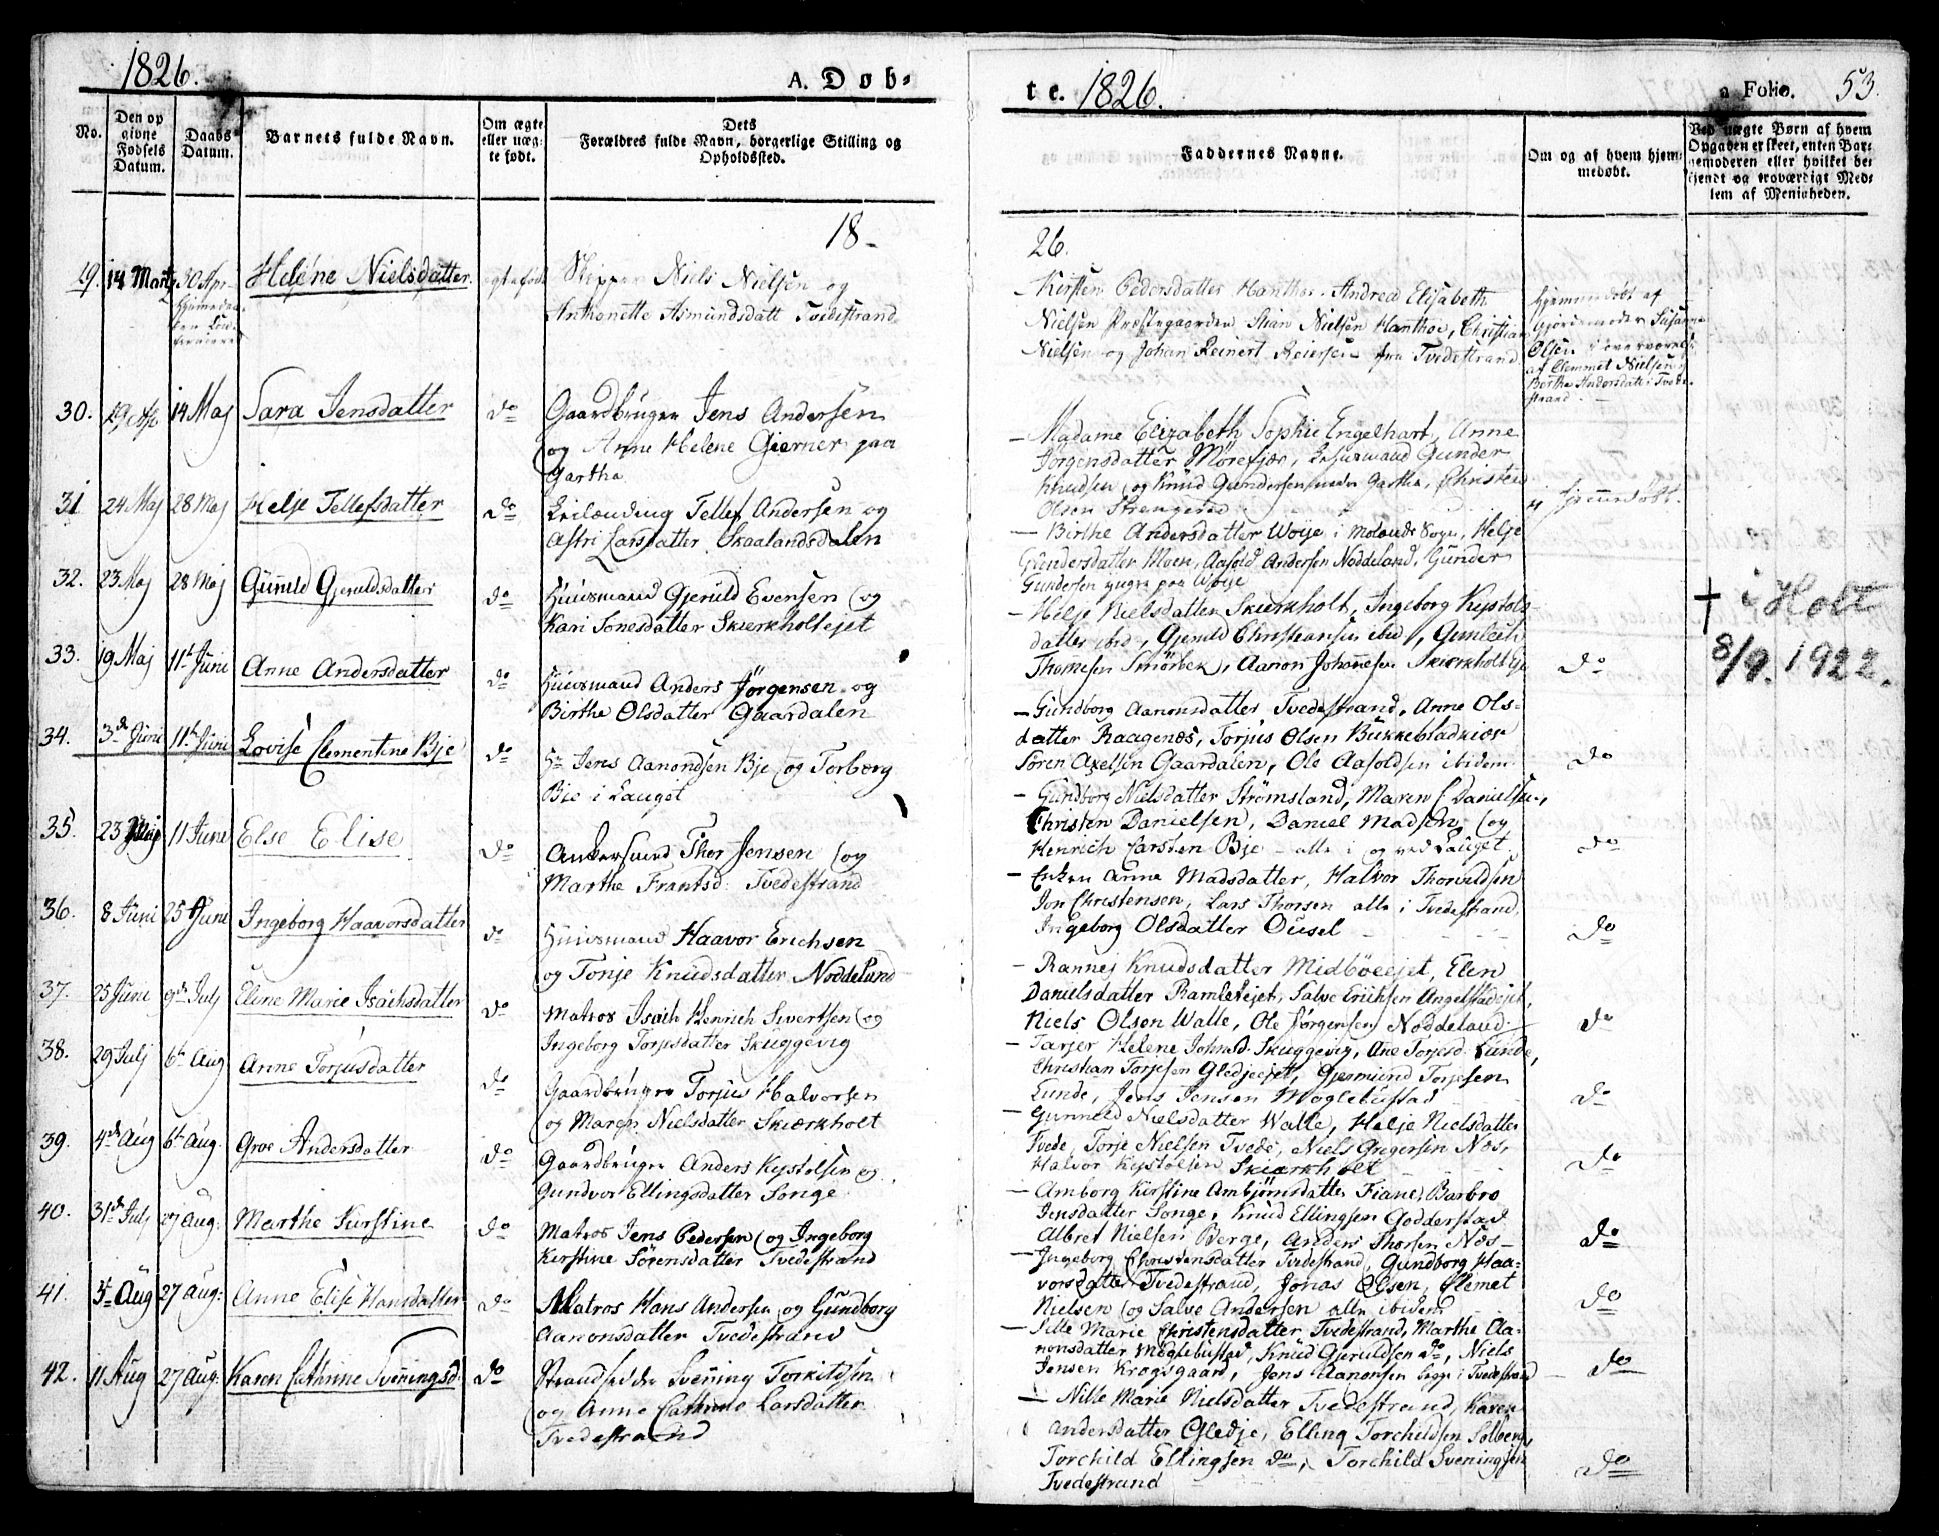 1826.
A. Döb-
No.
Den op
givne
Fødsels
Datum.
Daabs
Datum.
Barnets fulde Navn.
Om ægte
eller uæg-
te født.
Dets
Forældres fulde Navn, borgerlige Stilling og
Opholdssted.
18-
29. 14 Marts 30 Apr. Heléne Nielsdatter. egtefødt Skipper Niels Nielsen og
Anthonette Asmundsdatt Tvedestrand
30. 29 Ap 14 Maj Sara Jensdatter do Gaardbruger Jens Andersen
og Anne Helene Gierner paa
Gartha
31 24 Maj 28 Maj Helje Tellefsdatter do Leilænding Tellef Andersen og
Astri Larsdatter Skaalandsdalen
32. 23 Maj 28 Maj Guruld Gjeruldsdatter do Huusmand Gjeruld Evensen og
Kari Tonesdatter Skierkholtejet
33. 19 Maj 11t Juni Anne Andersdatter do Huusmand Anders Jörgensen og
Birthe Olsdatter Gaardalen
34. 3de Juni 11t Juni Lovise Clementine Bje do Hr Jens Aanondsen Bje og Torborg
Bie i Lauget
35. 23 Maj 11 June Else Elise do Ankersmed Thor Jensen og
Marthe Frantsd: Tvedestrand
36. 8 Juni 25 Juni Ingeborg Haavorsdatter do Huusmand Haavor Erichsen
og Tonje Knudsdatter Noddelund
37. 25 Juni 9de Julj Elene Marie Isachsdatter do Matros Isach Henrich Sivertsen og
Ingeborg Torjusdatter Skuggevig
38. 29 Julj 6te Aug Anne Torjusdatter do Gaardbruger Torjus Halvorsen
og Maren Nielsdatter Skierkholt
39. 4de Aug 6te Aug. Groe Andersdatter do Gaardbruger Anders Kystolsen og
Gundvor Ellingsdatter Songe
40. 31te Julj 27 Aug: Marthe Kirstine do Matros Jens Pedersen og Ingeborg
Kirstine Sörensdatter Tvedestrand
41. 5t Aug 27 Aug: Anne Elise Hansdatter do Matros Hans Andersen og Gundborg
Aanonsdatter Tvedestrand
42. 11 Aug 27 Aug: Karen Cathrine Sveningsd. do Strandsidder Svening Torkildsen
og Anne Cathrine Larsdatter
Tvedestrand
te. 1826.
a Folio. 53.
Faddernes Navne.
Om og af hvem hjem-
medøbt.
Ved uægte Børn af hvem
Opgaven er skeet, enten Bar-
nemoderen eller hvilket be-
kjendt og troværdigt Med-
lem af Menigheden.
26.
Kirsten Pedersdatter Hanthoe, Andrea Elisabeth
Nielsen Præstegaarden, Stian Nielsen Hanthoe, Christian
Nielsen og Johan Reinert Reiersen fra Tvedestrand
Hjemmedøbt af
Gjordemoder Susanne
Olsen i overværelse
af Clemmet Nielsen
Berthe Andersdatter Tvede-
strand
- Madame Elizabeth Sophie Engelhart, Anne
Jørgensdatter Mörefjær, Gunder
Knudsen og Knud Gundersen Gartha, Christen
Olsen Strengered
hjemmedöbt.
- Birthe Andersdatter Woije i Molands Sogn, Helje
Gundersdatter Moen, Aasold Andersen Noddeland, Gunder
Gundersen yngre paa Woije
- Helje Nielsdatter Skierkholt, Ingeborg Kystols
datter ibid, Gjeruld Christiansen ibid, Gunleth
Thomesen Smörbek, Aanon Johannesen Skierkholtej do
† i Holt
8/9. 1922.
- Gundborg Aanonsdatter Tvedestrand, Anne Ols-
datter Raagenæs, Torjus Olsen Bukkebladkier
Sören Axelsen Gaardalen, Ole Aasoldsen ibidem do
- Gundborg Nielsdatter Strömsland, Maren C Danielsen,
Christen Danielsen, Daniel Madsen og
Henrich Carsten Bje - alle i og ved Lauget. do
- Enken Anne Madsdatter, Halvor Thorvildsen
Jon Christensen, Lars Thorsen alle i Tvedestrand,
Ingeborg Olsdatter Ousel do
- Rannej Knudsdatter Midböeejet, Elen
Danielsdatter Ramleiejet, Salve Erichsen Angelstadejet,
Niels Olsen Walle, Ole Jörgensen Noddeland do
- Tarjer Helene Johnsd. Skuggevig, Ane Torjesd. Lunde,
Christian Torjesen Gledjeejet, Gjermund Torjesen
Lunde, Jens Jensen Moglebustad do
- Gunneld Nielsdatter Walle, Helje Nielsdatter
Tvede Torje Nielsen Tvede, Niels Gregersen Næs,
Halvor Kystolsen Skierkholt do
- Amborg Kirstine Ambjörnsdatter Fiane, Barbro
Jensdatter Songe, Knud Ellingsen Godderstad
Albret Nielsen Berge, Anders Thorsen Næs - do
- Ingeborg Christensdatter Tvedestrand, Gundborg Haa-
vorsdatter Tvedestrand, Jonas Olsen, Clemet
Nielsen og Salve Andersen alle ibidem do
- Sille Marie Christensdatter Tvedestrand, Marthe Aa-
nonsdatter Moglebustad, Knud Gjeruldsen do, Niels
Jensen Krogsgaard, Jens Aanonsen begge i Tvedestrand do
- Nille Marie Nielsdatter Tvedestrand, Karen
Andersdatter Gledje, Elling Torchildsen Solberg,
Torchild Ellingsen do, Torchild Sveningsen do
Tvedestrand